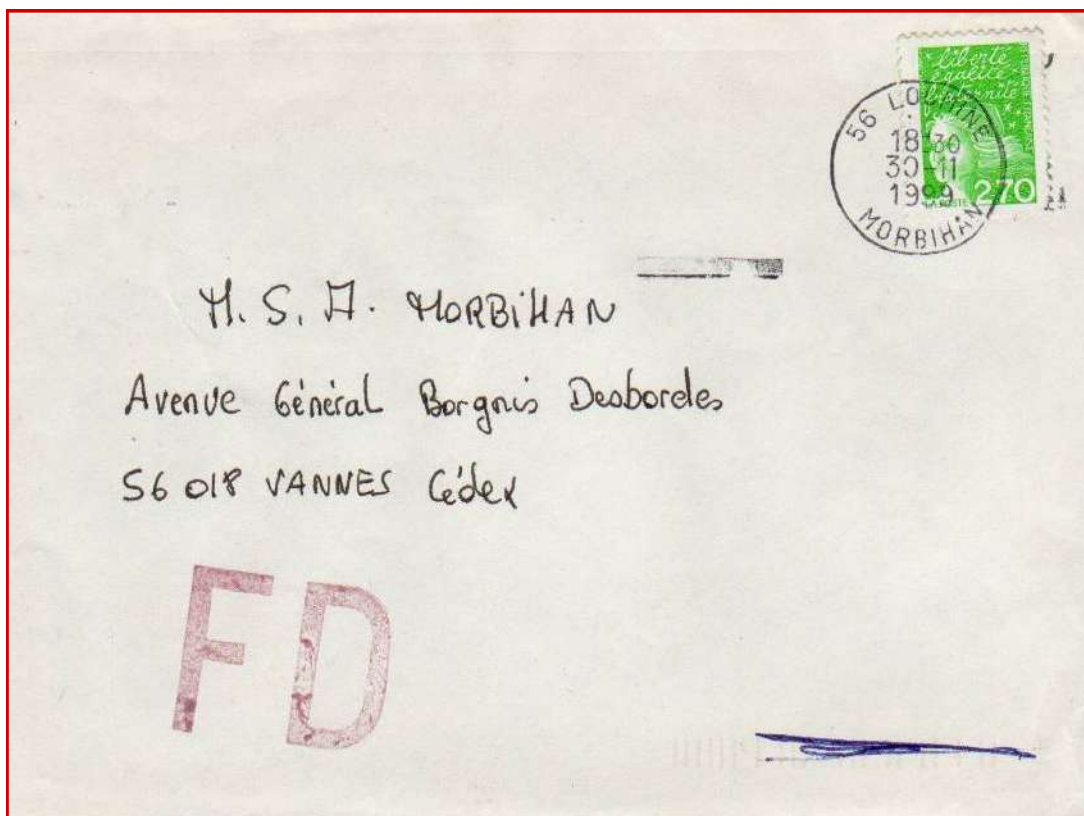 liberté
égalité
fraternité
2,70
LA POSTE
56 LOCMINE
18-30
30-11
1999
MORBIHAN
M. S. A. MORBiHAN
Avenue Général Borgnis Desbordes
56 018 VANNES Cédex
FD